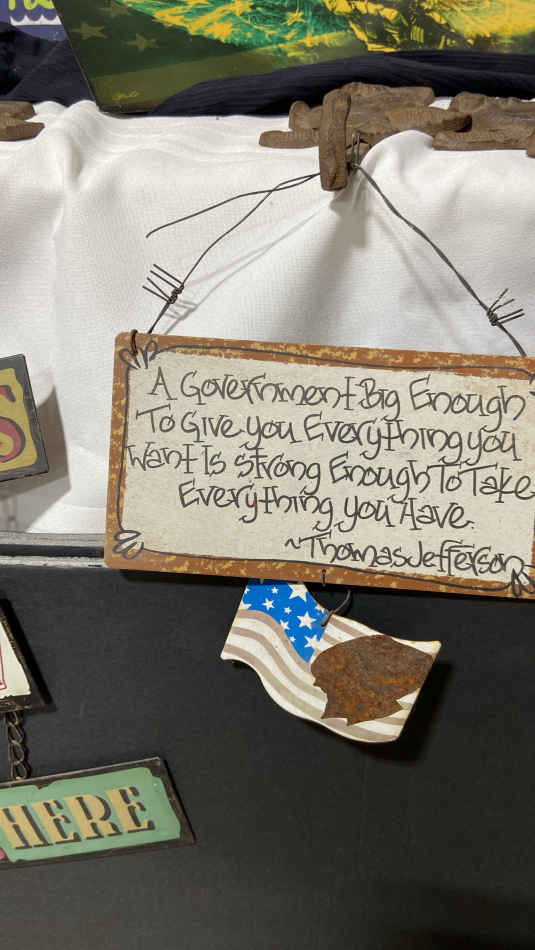 A Government Big Enough
To Give you Everything you
Want Is strong Enough To Take
Everything you Have.
~Thomas Jefferson
HERE